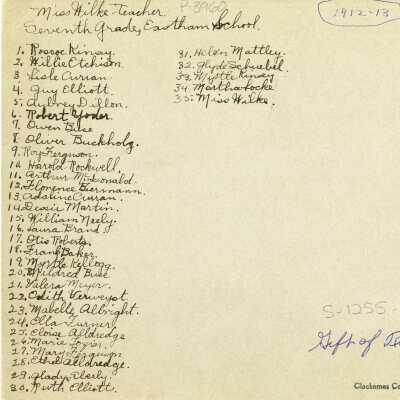 Miss Wilke-Teacher
P-3966
Seventh Grade, Eastham School.
1912-13
1. Roscoe Kinsay.
2. Willie Etchison.
3. Lisle Curran
4. Guy Elliott.
5. Aubrey Dillon.
6. Robert Yoder.
7. Owen Buse
8. Oliver Buckholz.
9. Ray Ferguson.
10. Harold Rockwell.
11. Arthur McDonald.
12. Florence Biermann.
13. Adaline Curran.
14. Dessie Martin.
15. William Neely.
16. Laura Brandt
17. Otis Roberts.
18. Frank Baker.
19. Myrtle Kellogg.
20. Mildred Buse
21. Valera Meyer.
22. Odith Verweyst
23. Mabelle Albright.
24. Etta Turner
25. Eloise Alldredge
26. Marie
27. Mary Ferguson
28. Ethel Alldredge.
29. Gladys Eberly.
30. Ruth Elliott.
31. Helen Mattley.
32. Clyde Schuebel.
33. Myrtle Kinsay
34. Martha Locke
35. Miss Wilke.
S-1255-
Gift of
Clackamas Co